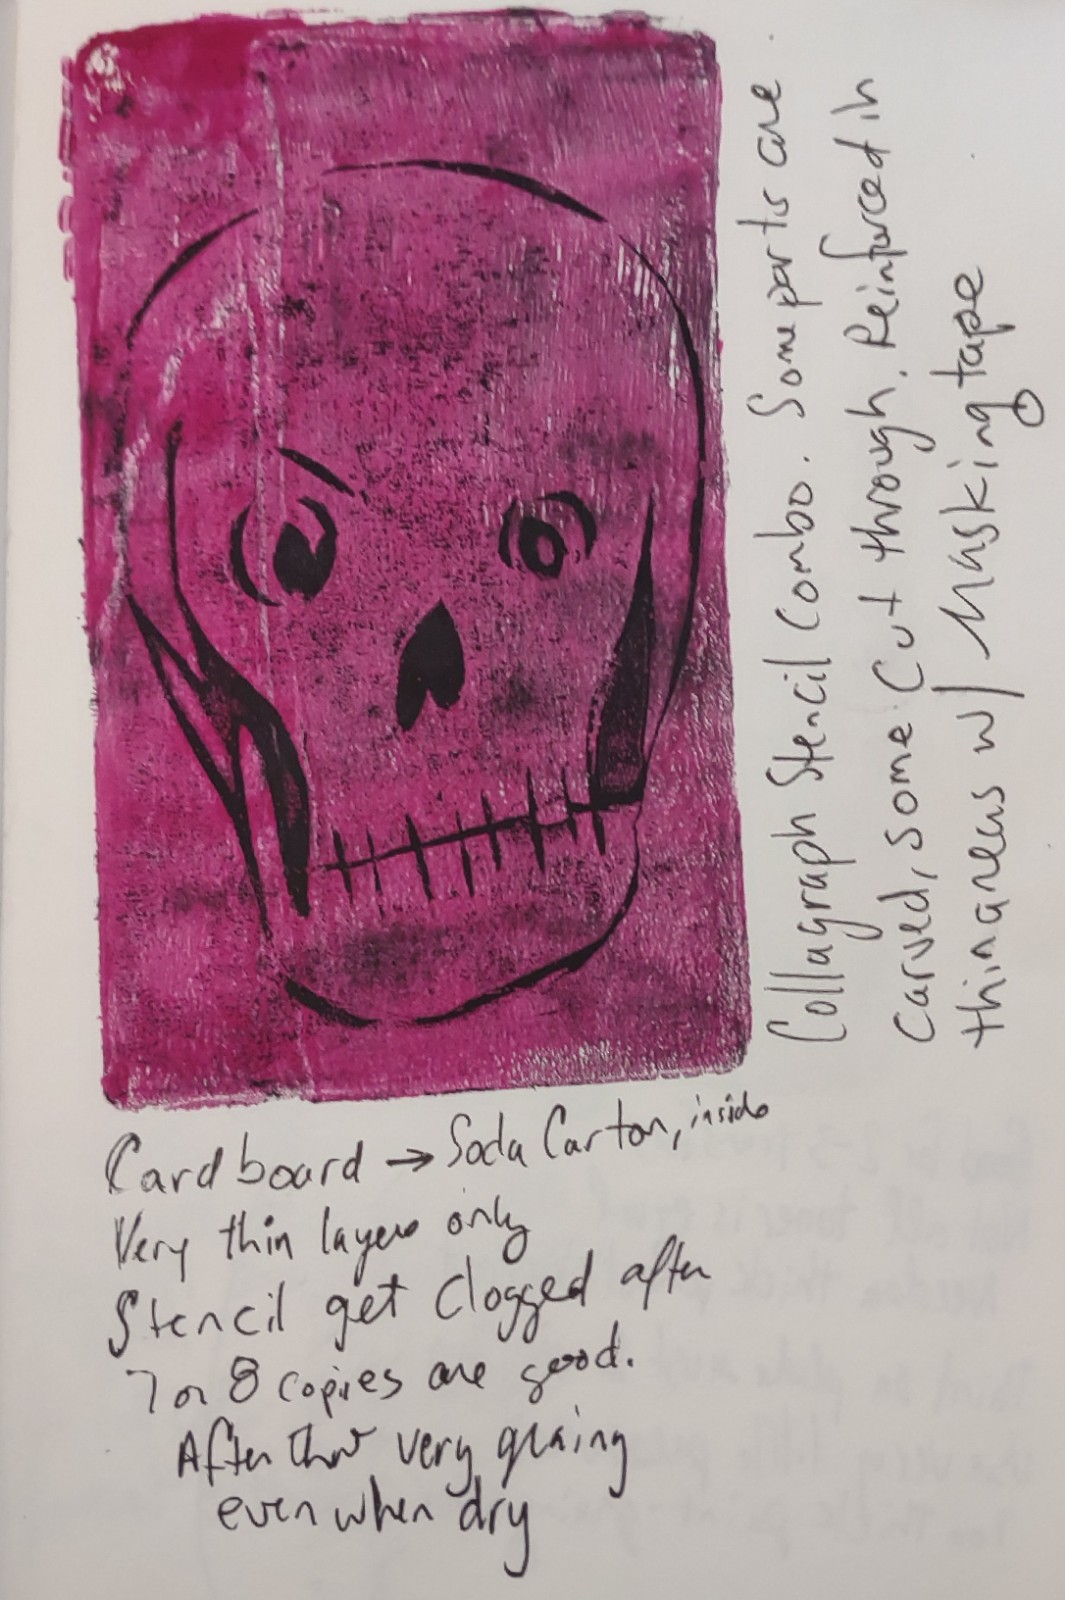 Collagraph Stencil Combo. Some parts are
Carved, some Cut through. Reinforced in
thin areas w/ Masking tape
Cardboard → Soda Carton, inside
Very thin layers only
Stencil get Clogged after
7 or 8 copies are good.
After that very graing
even when dry